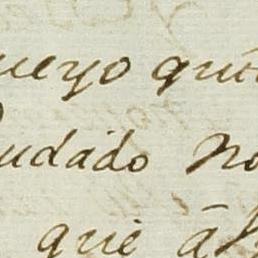 ueyo qui
udado no
que á